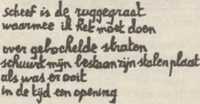 scheef is de ruggegraat
waarmee ik het móet doen
over gebochelde straten
schuurt mijn bestaan zijn stalen plaat
als was er ooit
in de tijd een opening